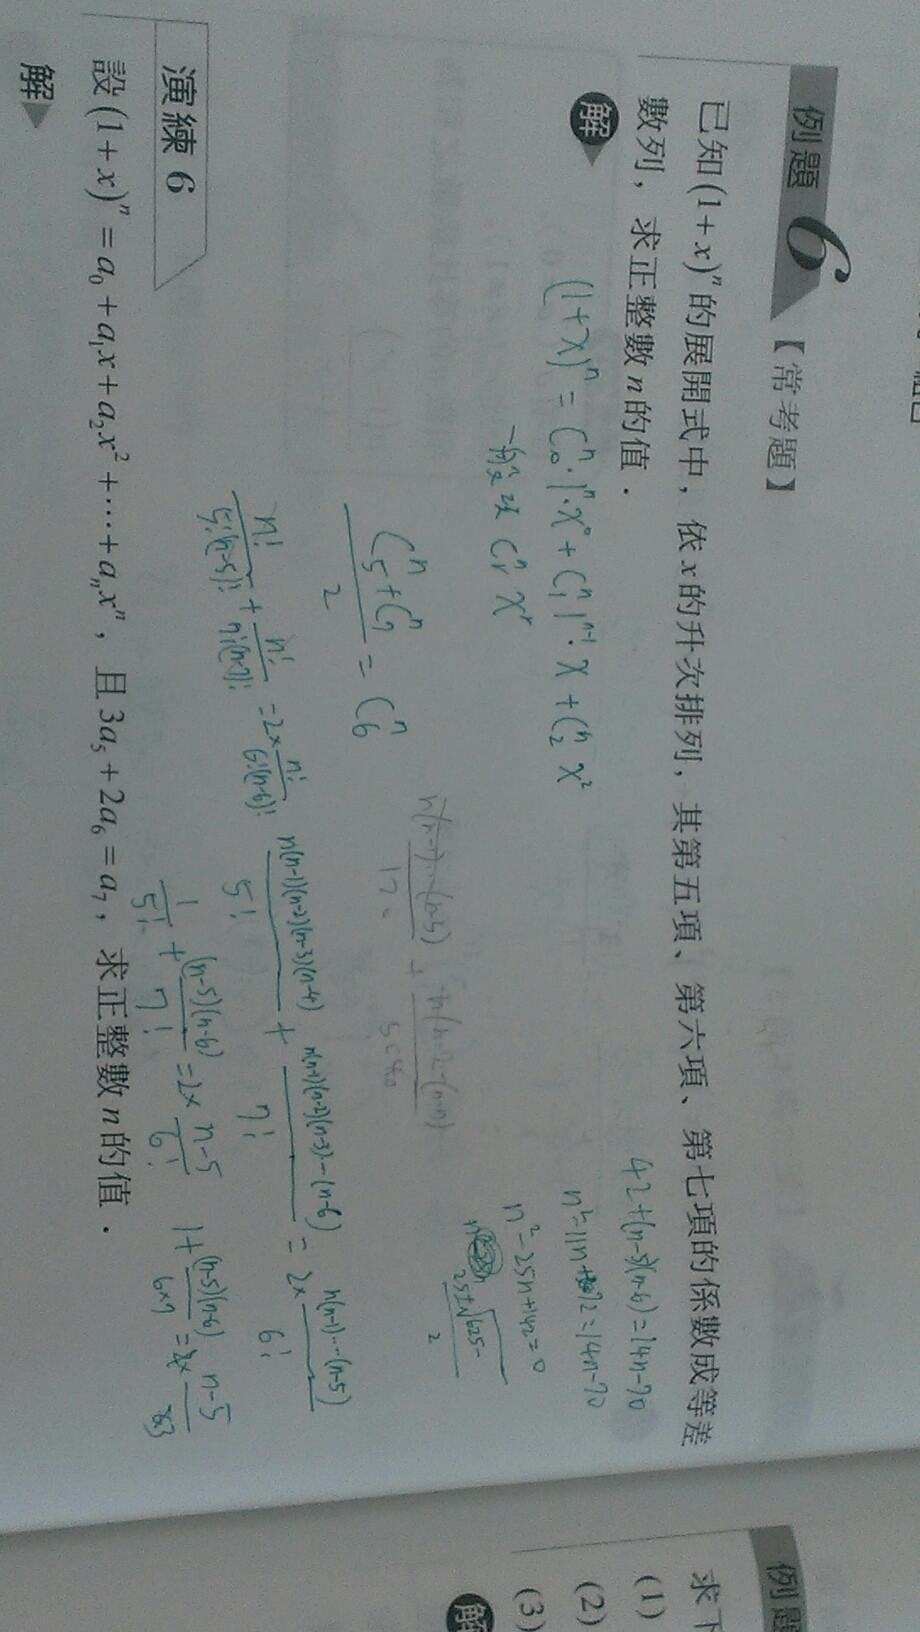 例題 6 【常考題】
已知(1+x)ⁿ的展開式中，依x的升次排列，其第五項、第六項、第七項的係數成等差
數列，求正整數n的值．
解
(1+x)ⁿ = C₀ⁿ·1ⁿ·x⁰ + C₁ⁿ 1ⁿ⁻¹·x + C₂ⁿ x²
Cᵣⁿ xʳ
(C₅ⁿ+C₇ⁿ)/2 = C₆ⁿ
n!/5!(n-5)! + n!/7!(n-7)! = 2× n!/6!(n-6)!
n(n-1)(n-2)(n-3)(n-4)/5! + n(n-1)(n-2)(n-3)…(n-6)/7! = 2× n(n-1)…(n-5)/6!
1/5! + (n-5)(n-6)/7! = 2× n-5/6!
1+ (n-5)(n-6)/6×7 = n-5
42+(n-5)(n-6)=14n-70
n²-11n+72=14n-70
n²-25n+142=0
25±√625-
2
演練 6
設(1+x)ⁿ = a₀ + a₁x + a₂x² + ⋯ + aₙxⁿ，且3a₅ + 2a₆ = a₇，求正整數n的值．
解
例題
求下
(1)
(2)
(3)
解